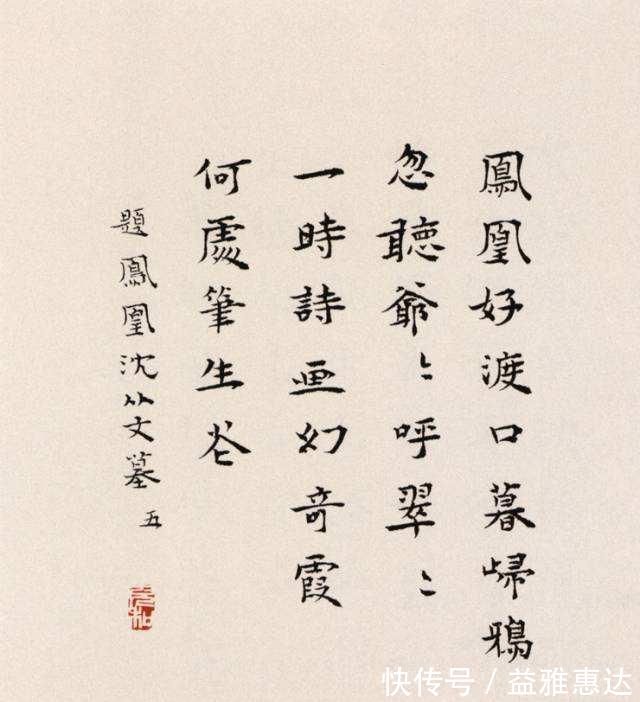 鳳凰好渡口暮歸鴉
忽聽爺〻呼翠〻
一時詩画幻奇霞
何處筆生花
題鳳凰沈从文墓 五
快传号 / 益雅惠达